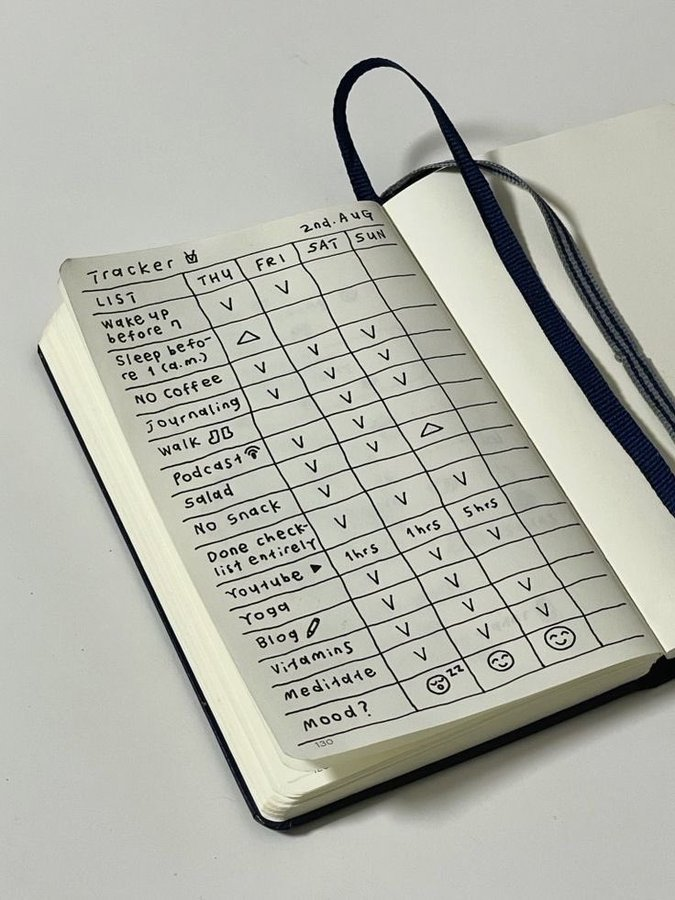 Tracker 2nd. AUG
LIST THU FRI SAT SUN
Wake up V V
before 7
Sleep befo-
re 1 (a.m.) △
NO coffee V V V
journaling V V V
Walk V V
Podcast V V
Salad V V △
No snack V
Done check-
list entirely V V V
Youtube ▶ 1hrs 1hrs 5hrs
Yoga V V V
Blog V V
Vitamins V V V
Meditate V V V
Mood? zz
130